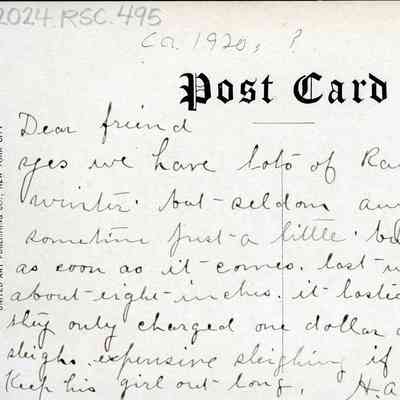 2024.RSC.495
ca. 1920s ?
Post Card
Dear friend
yes we have lots of
winter. but seldom
sometime just a little
as soon as it comes. last
about eight inches. it
they only charged one dollar
sleighs. expensive sleighing if
Keep his girl out long. H.A
UNITED ART PUBLISHING CO., NEW YORK CITY